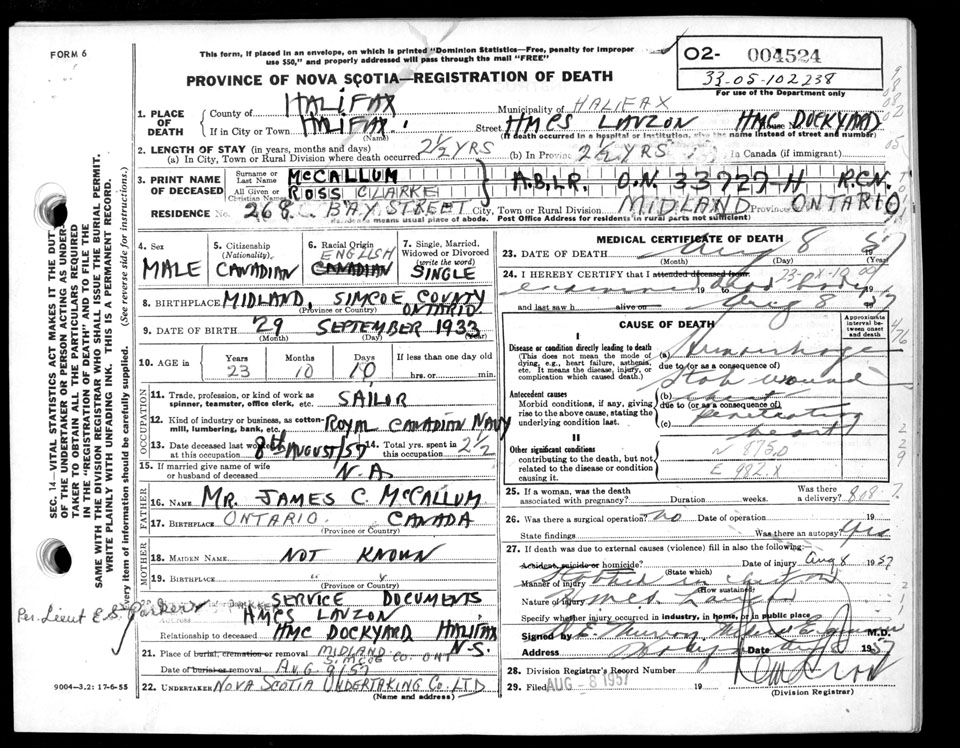 FORM 6
This form, if placed in an envelope, on which is printed "Dominion Statistics—Free, penalty for improper
use $50," and properly addressed will pass through the mail "FREE"
O2- 004524
33-05-102238
For use of the Department only
PROVINCE OF NOVA SCOTIA—REGISTRATION OF DEATH
1. PLACE OF DEATH
County of HALIFAX Municipality of HALIFAX
If in City or Town HALIFAX Street HMCS LAUZON HMC DOCKYARD
(Name) (If death occurred in a hospital or institution, give the name instead of street and number)
2. LENGTH OF STAY (in years, months and days)
(a) In City, Town or Rural Division where death occurred 2½ YRS (b) In Province 2½ YRS In Canada (if immigrant)
3. PRINT NAME OF DECEASED
Surname or Last Name McCALLUM
All Given or Christian Names ROSS CLARKE
A.B.L.R. O.N. 33727-H R.C.N.
RESIDENCE No. 268 BAY STREET City, Town or Rural Division MIDLAND Province ONTARIO
Residence means usual place of abode. Post Office Address for residents in rural parts not sufficient)
4. Sex MALE
5. Citizenship (Nationality) CANADIAN
6. Racial Origin ENGLISH CANADIAN
7. Single, Married, Widowed or Divorced (write the word) SINGLE
8. BIRTHPLACE MIDLAND, SIMCOE COUNTY ONTARIO
(Province or Country)
9. DATE OF BIRTH 29 SEPTEMBER 1933
(Month) (Day) (Year)
10. AGE IN Years 23 Months 10 Days 10 If less than one day old
hrs. or min.
OCCUPATION
11. Trade, profession, or kind of work as spinner, teamster, office clerk, etc. SAILOR
12. Kind of industry or business, as cotton-mill, lumbering, bank, etc. ROYAL CANADIAN NAVY
13. Date deceased last worked at this occupation 8th AUGUST/57 14. Total yrs. spent in this occupation 2½
15. If married give name of wife or husband of deceased N.A.
FATHER
16. NAME MR. JAMES C. McCALLUM
17. BIRTHPLACE ONTARIO CANADA
(Province or Country)
MOTHER
18. MAIDEN NAME NOT KNOWN
19. BIRTHPLACE " "
(Province or Country)
SERVICE DOCUMENTS
Per. Lieut E.S. Parker
Address HMCS LAUZON
Relationship to deceased HMC DOCKYARD HALIFAX N.S.
21. Place of burial, cremation or removal MIDLAND SIMCOE CO. ONT
Date of burial or removal AUG 9/57
22. UNDERTAKER NOVA SCOTIA UNDERTAKING CO. LTD
(Name and address)
9004—3.2: 17-6-55
SEC. 14—VITAL STATISTICS ACT MAKES IT THE DUTY
OF THE UNDERTAKER OR PERSON ACTING AS UNDER-
TAKER TO OBTAIN ALL THE PARTICULARS REQUIRED
IN THE "REGISTRATION OF DEATH" AND TO FILE THE
SAME WITH THE DIVISION REGISTRAR WHO SHALL ISSUE THE BURIAL PERMIT.
WRITE PLAINLY WITH UNFADING INK. THIS IS A PERMANENT RECORD.
Every item of information should be carefully supplied. (See reverse side for instructions.)
MEDICAL CERTIFICATE OF DEATH
23. DATE OF DEATH Aug 8 57
(Month) (Day) (Year)
24. I HEREBY CERTIFY that I attended deceased from
examined dead body
and last saw h alive on Aug 8 1957
CAUSE OF DEATH
Approximate interval between onset and death
I
Disease or condition directly leading to death
(This does not mean the mode of dying, e.g., heart failure, asthenia, etc. It means the disease, injury, or complication which caused death.)
(a) Hemorrhage
due to (or as a consequence of)
Antecedent causes
Morbid conditions, if any, giving rise to the above cause, stating the underlying condition last.
(b) Stab wound chest
due to (or as a consequence of)
(c) penetrating heart
II
Other significant conditions
contributing to the death, but not related to the disease or condition causing it.
N 875.0
E 982.X
25. If a woman, was the death associated with pregnancy? Duration weeks. Was there a delivery?
26. Was there a surgical operation? no Date of operation 19
State findings Was there an autopsy? yes
27. If death was due to external causes (violence) fill in also the following:
Accident, suicide or homicide? Date of injury Aug 8 1957
(State which)
Manner of injury Stabbed in
(How sustained)
Nature of injury HMCS Lauzon
Specify whether injury occurred in industry, in home, or in public place
Signed by M.D.
Address Date 1957
28. Division Registrar's Record Number
29. Filed AUG -8 1957 19
(Division Registrar)